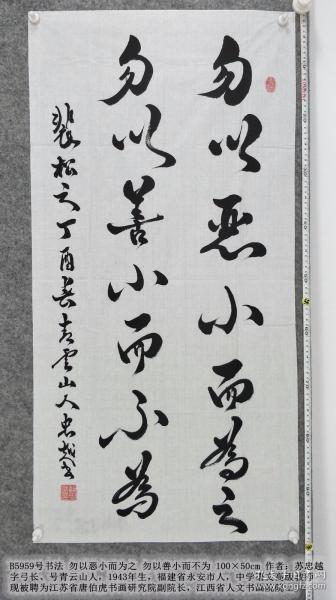 勿以恶小而為之
勿以善小而不為
裴松之丁酉春青云山人忠越书
B5959号书法 勿以恶小而为之 勿以善小而不为 100×50cm 作者：苏忠越
字弓长、号青云山人，1943年生，福建省永安市人，中学语文高级教师
现被聘为江苏省唐伯虎书画研究院副院长、江西省人文书画院院士